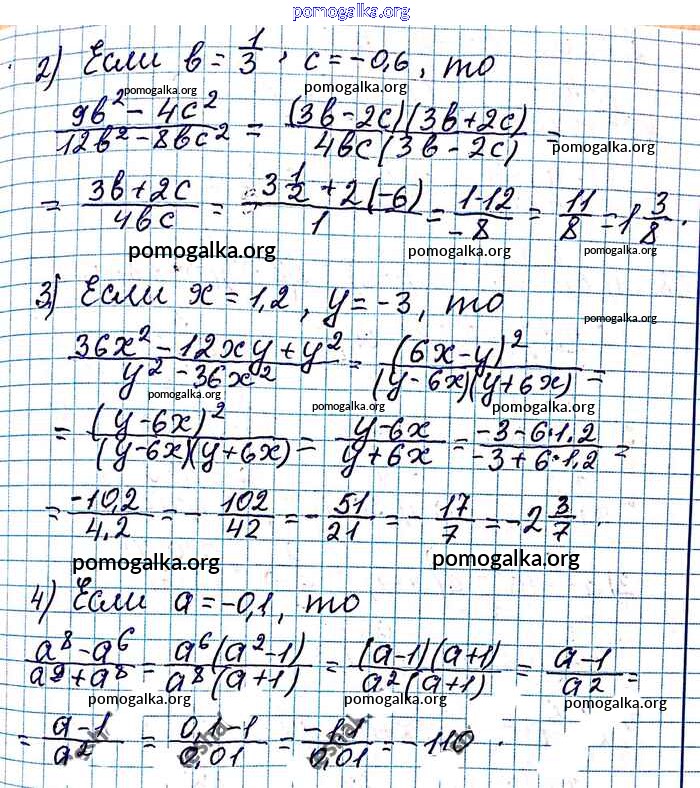 pomogalka.org
2) Если b = 1/3, c = -0,6, то
pomogalka.org pomogalka.org
(9b² - 4c²)/(12b² - 8bc²) = ((3b-2c)(3b+2c))/(4bc(3b-2c)) =
pomogalka.org
= (3b+2c)/(4bc) = (3 1/2 + 2(-6))/1 = (1-12)/(-8) = 11/8 = 1 3/8.
pomogalka.org pomogalka.org pomogalka.org
3) Если x = 1,2, y = -3, то
pomogalka.org
(36x² - 12xy + y²)/(y² - 36x²) = (6x-y)²/((y-6x)(y+6x)) =
pomogalka.org pomogalka.org pomogalka.org
= (y-6x)²/((y-6x)(y+6x)) = (y-6x)/(y+6x) = (-3-6·1,2)/(-3+6·1,2) =
= (-10,2)/4,2 = -102/42 = -51/21 = -17/7 = -2 3/7.
pomogalka.org pomogalka.org
4) Если a = -0,1, то
(a⁸ - a⁶)/(a⁹ + a⁸) = (a⁶(a²-1))/(a⁸(a+1)) = ((a-1)(a+1))/(a²(a+1)) = (a-1)/a² =
pomogalka.org pomogalka.org pomogalka.org
= (a-1)/a² = (0,1-1)/0,01 = (-1,1)/0,01 = -110.